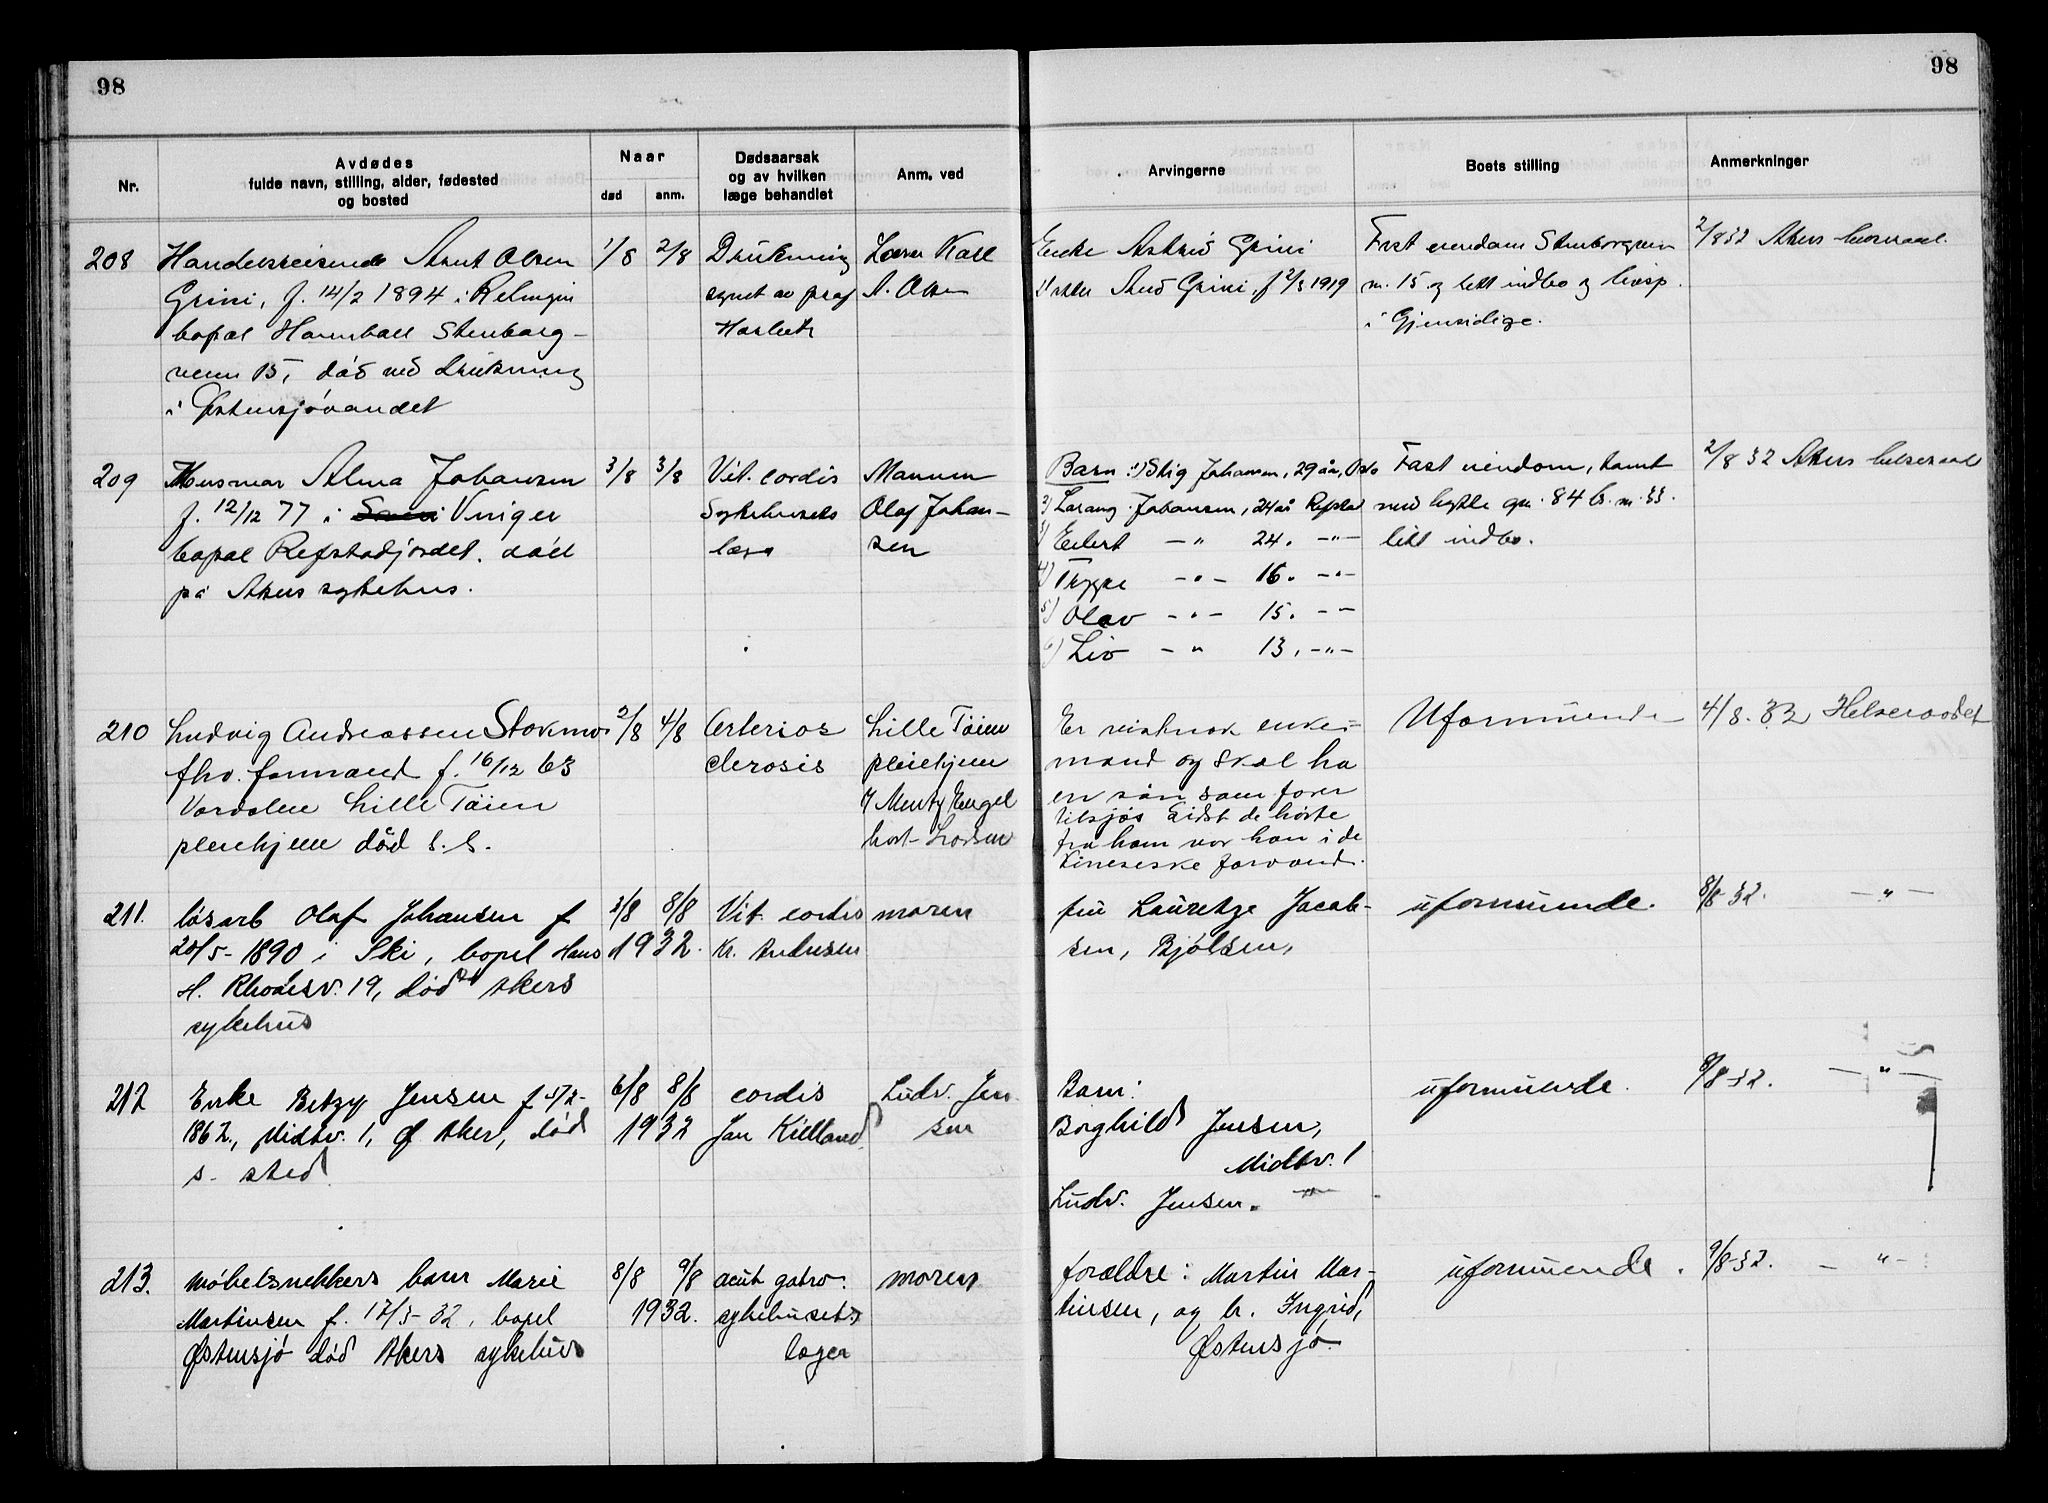 98
98
Nr.
Avdødes
fulde navn, stilling, alder, fødested
og bosted
Naar
død
anm.
Dødsaarsak
og av hvilken
læge behandlet
Anm. ved
Arvingerne
Boets stilling
Anmerkninger
208
Handelsreisende Arnt Olsen
Grini, f. 14/2 1894 i Relingen
bopæl Stenborg-
veien 15, død ved drukning
i Østensjøvandet
1/8
2/8
Drukning
synet av prof
Harbitz
Karl
A. Olsen
Enke Astrid Grini
Grini, f 2/3 1919
Fast eiendom Stenborgveien
nr. 15 og litt indbo og livsp.
i Gjensidige.
2/8 32 Akers helseraad.
209
Husmor Alma Johansen
f. 12/12 77 i Vinger
bopæl Refstadjordet. død
på Akers sykehus.
3/8
3/8
Vit. cordis
Sykehusets
læge
Mannen
Olaf Johan-
sen
Barn: 1) Stig Johansen, 29 år, Oslo
2) Johansen, 24 år Refstad
3) Eilert — " 24. — " —
4) Trygve — " — 16. — " —
5) Olav — " — 15. — " —
6) Liv — " 13. — " —
Fast eiendom, tomt
med hytte gn. 84 b. nr. 33.
litt indbo.
2/8 32 Akers helseraad
210
Ludvig Andreassen Stokmo
fhv. formand f. 16/12 63
Værdalen Lille Tøien
pleiehjem død s. s.
2/8
4/8
Arterios
clerosis
Lille Tøien
pleiehjem
v/ Mentz Engel
hart-Larsen
Er vistnok enke-
mand og skal ha
en søn som farer
tilsjøs Sidst de hørte
fra ham var han i de
Kinesiske farvand.
Uformuende
4/8. 32 Helseraadet
211.
løsarb Olaf Johansen f
20/5-1890 i Ski, bopel Hans
H. Rhodesv. 19, død Akers
sykehus
3/8
8/8
1932.
Vit. cordis
Kr. Andresen
moren
fru Lauretze Jacob-
sen, Bjølsen,
uformuende.
8/8 32. — " —
212
Enke Betzy Jensen f 5/2-
1862, Midtv. 1, Ø. Aker, død
s. sted
6/8
8/8
1932
cordis
Jan Kielland
Ludv. Jen
sen
Barn:
Borghild Jensen,
Midtv. 1
Ludv. Jensen. "
uformuende.
8/8-32. — " —
213.
møbelsnekkers barn Marie
Martinsen f. 17/5-32, bopel
Østensjø død Akers sykehus
8/8
9/8
1932.
acut gatro.
sykehusets
læger
moren
forældre: Martin Mar-
tinsen, og h. Ingrid,
Østensjø.
uformuende.
9/8-32. — " —